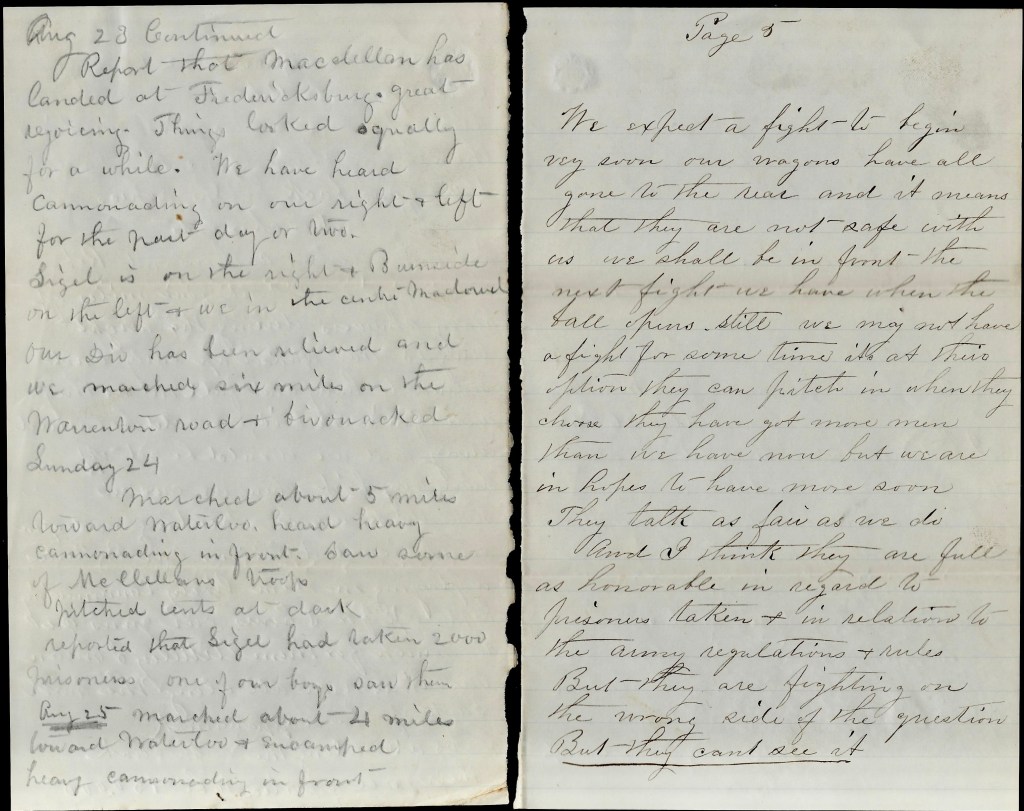 Aug 23 Continued
Report that Macclellan has
landed at Fredericksburg. great
rejoicing. Things looked squally
for a while. We have heard
Cannonading on our right & left
for the past day or two.
Sigel is on the right & Burnside
on the left & we in the centre Macdowel
Our Div has been relieved and
we marched six miles on the
Warrenton road & bivouacked
Sunday 24
Marched about 5 miles
toward Waterloo. heard heavy
cannonading in front. Saw some
of McClellans troops
pitched tents at dark
reported that Sigel had taken 2000
prisoners one of our boys saw them
Aug 25 marched about 4 miles
toward Waterloo & encamped
heavy cannonading in front
Page 5
We expect a fight to begin
vey soon our wagons have all
gone to the rear and it means
that they are not safe with
us we shall be in front the
next fight we have when the
ball opens. still we may not have
a fight for some time its at their
option they can pitch in when they
choose they have got more men
than we have now but we are
in hopes to have more soon
They talk as fair as we do
And I think they are full
as honorable in regard to
prisoners taken & in relation to
the army regulations & rules
But they are fighting on
the wrong side of the question
But they cant see it